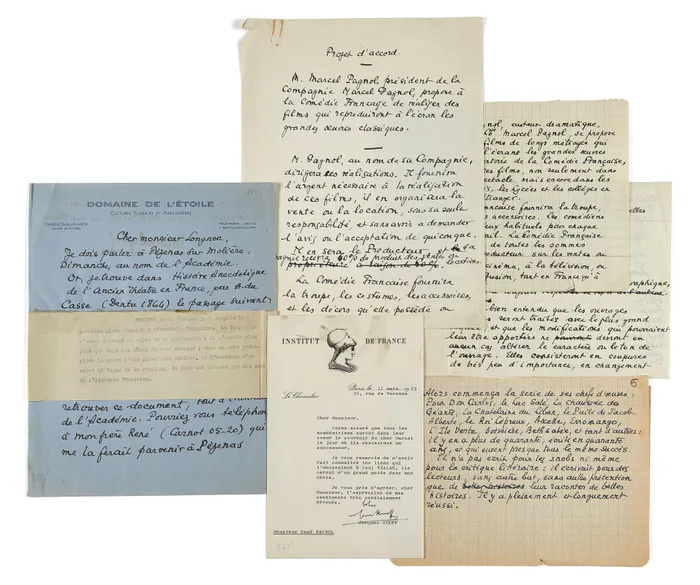 Projet d'accord.
M. Marcel Pagnol, président de la
Compagnie Marcel Pagnol, propose à
la Comédie Française de réaliser des
films qui reproduiront à l'écran les
grandes œuvres classiques.
M. Pagnol, au nom de sa Compagnie,
dirigera ses réalisations. Il fournira
l'argent nécessaire à la réalisation
de ces films, il en organisera la
vente ou la location, sous sa seule
responsabilité, et sans avoir à demander
l'avis ou l'acceptation de quiconque.
Il en sera le Producteur, et
60% du produit des ventes ou
locations.
La Comédie Française fournira
la troupe, les costumes, les accessoires,
et les décors qu'elle possède ou
gnol, auteur dramatique,
Marcel Pagnol, se propose
films de longs métrages qui
l'écran les grandes œuvres
de la Comédie Française,
ces films, non seulement dans
spectacle, mais encore dans les
les lycées et les collèges en
étranger.
ançaise fournira la troupe,
accessoires. Les comédiens
eux habituels pour chaque
travail. La Comédie Française
de toutes les sommes
oducteur sur les ventes ou
cinéma, à la télévision, ou
fusion, tant en France qu'à
elles
raphique,
l'auteur.
bien entendu que les ouvrages
seront traités avec le plus grand
et que les modifications qui pourraient
leur être apportées ne devront en
aucun cas altérer le caractère ou le ton de
l'ouvrage. Elles consisteront en coupures
de très peu d'importance, en changement
DOMAINE DE L'ÉTOILE
CULTURES FLORALES ET MARAICHÈRES
Cher monsieur Longnon,
Je dois parler à Pézenas sur Molière,
Dimanche, au nom de l'Académie.
Or, je trouve dans Histoire Anecdotique
de l'Ancien Théâtre en France, par A. du
Casse (Dentu 1864) le passage suivant:
retrouver ce document,
de l'Académie. Pourriez vous téléphoner
à mon frère René (Carnot 05-20) qui
me la ferait parvenir à Pézenas
INSTITUT DE FRANCE
Le Chancelier
Paris le 11 mars 1975
Cher Monsieur,
Soyez assuré que tous les
académiciens auront dans leur
coeur le souvenir du cher Marcel
le jour où ils choisiront un
successeur.
Je vous remercie de m'avoir
fait connaître les liens qui
l'unissaient à Paul VIALAR, ils
seront d'un grand poids dans mon
choix.
Je vous prie d'agréer, cher
Monsieur, l'expression de mes
sentiments très cordialement
dévoués.
Jacques RUEFF
Monsieur René PAGNOL
5
Alors commença la série de ses chefs d'œuvre:
Pour Don Carlos, le Lac Salé, la Chaussée des
Géants, la Châtelaine du Liban, le Puits de Jacob
Alberte, le Roi Lépreux, Axelle, Erromango,
l'Ile Verte, Boissière, Bethsabée, et tant d'autres:
il y en a plus de quarante, écrits en quarante
ans, et qui eurent presque tous le même succès.
Il n'a pas écrit pour les snobs ni même
pour la critique littéraire: il écrivait pour des
lecteurs, sans autre but, sans autre prétention
que de leur raconter de belles
histoires. Il y a pleinement et longuement
réussi.